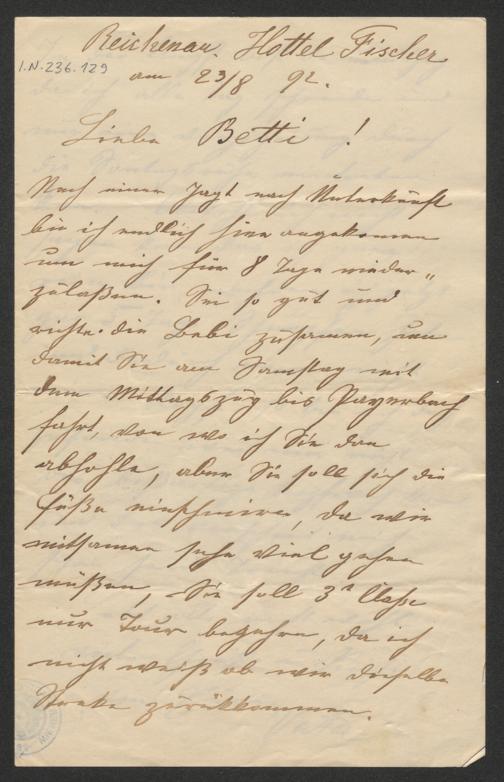 Reichenau. Hottel Fischer
I.N.236.129
am 23/8 92.
Liebe Betti!
Nach einer Jagt nach Unterkunft
bin ich endlich hier angekomen
um mich für 8 Tage nieder„
zulaßen. Sei so gut und
richte die Bebi zusamen, um
damit Sie am Samstag mit
dem Mittagszug bis Payerbach
fahrt, von wo ich Sie dan
abhohle, aber Sie soll sich die
füße einschmiren, da wir
mitsamen sehr viel gehen
müßen, Sie soll 3ᵗ Claße
nur Tour begehren, da ich
nicht weiß ob wir dieselbe
Streke zurükkommen.